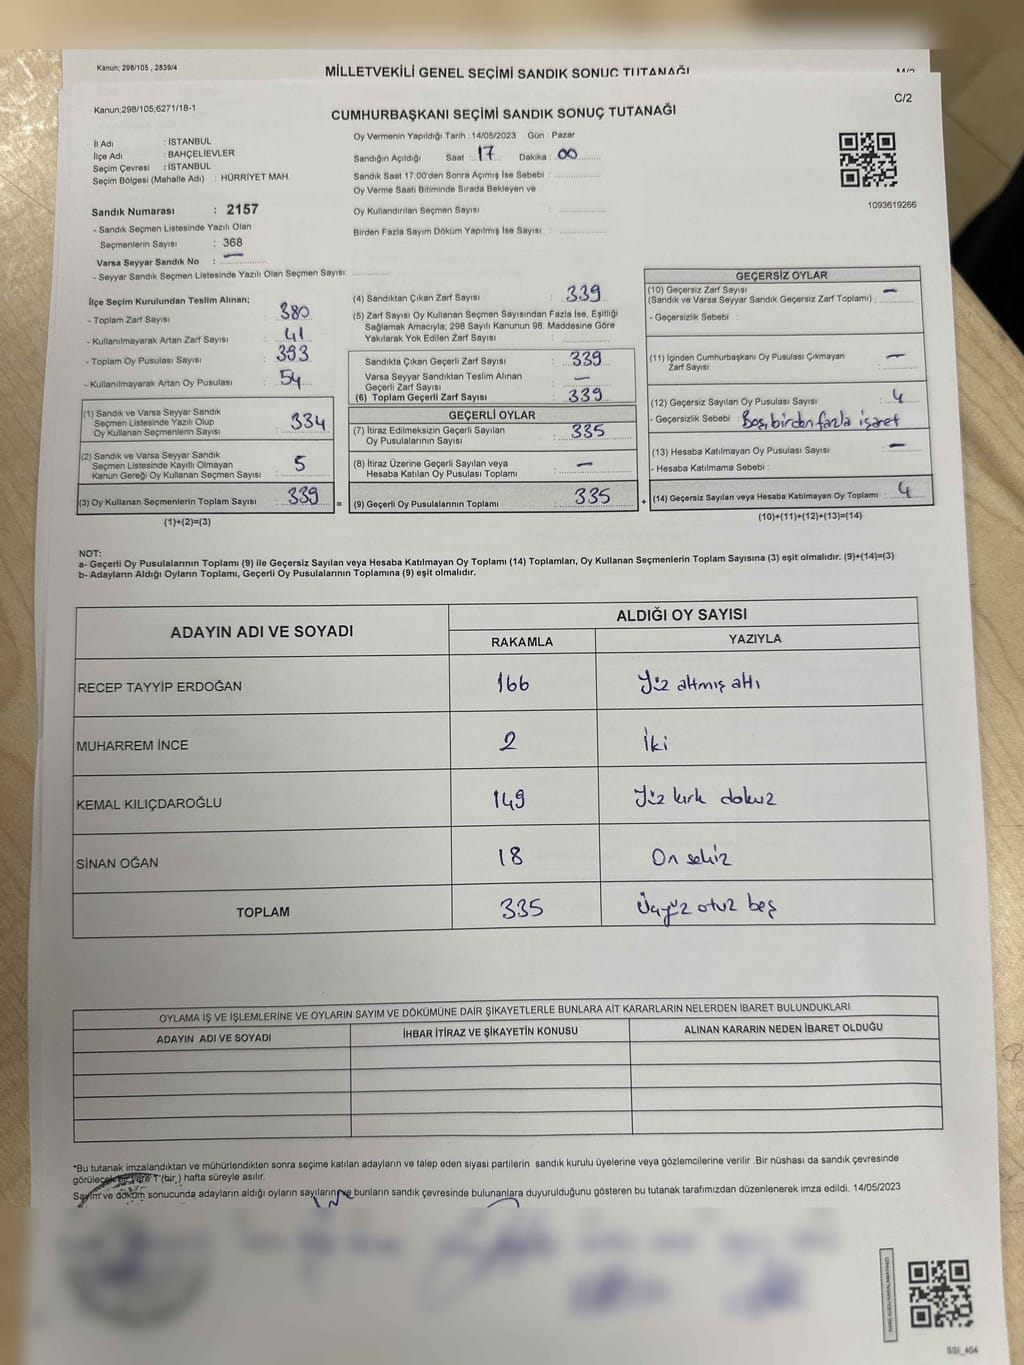 Kanun; 298/105 , 2839/4
MİLLETVEKİLİ GENEL SEÇİMİ SANDIK SONUÇ TUTANAĞI
Kanun;298/105;6271/18-1
C/2
CUMHURBAŞKANI SEÇİMİ SANDIK SONUÇ TUTANAĞI
İl Adı : İSTANBUL
İlçe Adı : BAHÇELİEVLER
Seçim Çevresi : İSTANBUL
Seçim Bölgesi (Mahalle Adı) : HÜRRİYET MAH.
Oy Vermenin Yapıldığı Tarih : 14/05/2023 Gün : Pazar
Sandığın Açıldığı Saat : 17 Dakika : 00
Sandık Saat 17:00'den Sonra Açımış İse Sebebi :
Oy Verme Saati Bitiminde Sırada Bekleyen ve
Oy Kullandırılan Seçmen Sayısı :
Birden Fazla Sayım Döküm Yapılmış İse Sayısı :
1093619266
Sandık Numarası : 2157
- Sandık Seçmen Listesinde Yazılı Olan
Seçmenlerin Sayısı : 368
Varsa Seyyar Sandık No : —
- Seyyar Sandık Seçmen Listesinde Yazılı Olan Seçmen Sayısı:
İlçe Seçim Kurulundan Teslim Alınan;
- Toplam Zarf Sayısı : 380
- Kullanılmayarak Artan Zarf Sayısı : 41
- Toplam Oy Pusulası Sayısı : 393
- Kullanılmayarak Artan Oy Pusulası : 54
(1) Sandık ve Varsa Seyyar Sandık
Seçmen Listesinde Yazılı Olup
Oy Kullanan Seçmenlerin Sayısı : 334
(2) Sandık ve Varsa Seyyar Sandık
Seçmen Listesinde Kayıtlı Olmayan
Kanun Gereği Oy Kullanan Seçmen Sayısı : 5
(3) Oy Kullanan Seçmenlerin Toplam Sayısı : 339 =
(1)+(2)=(3)
(4) Sandıktan Çıkan Zarf Sayısı : 339
(5) Zarf Sayısı Oy Kullanan Seçmen Sayısından Fazla İse, Eşitliği
Sağlamak Amacıyla; 298 Sayılı Kanunun 98. Maddesine Göre
Yakılarak Yok Edilen Zarf Sayısı :
Sandıkta Çıkan Geçerli Zarf Sayısı : 339
Varsa Seyyar Sandıktan Teslim Alınan
Geçerli Zarf Sayısı : —
(6) Toplam Geçerli Zarf Sayısı : 339
GEÇERLİ OYLAR
(7) İtiraz Edilmeksizin Geçerli Sayılan
Oy Pusulalarının Sayısı : 335
(8) İtiraz Üzerine Geçerli Sayılan veya
Hesaba Katılan Oy Pusulası Toplamı : —
(9) Geçerli Oy Pusulalarının Toplamı : 335 +
GEÇERSİZ OYLAR
(10) Geçersiz Zarf Sayısı
(Sandık ve Varsa Seyyar Sandık Geçersiz Zarf Toplamı) : —
- Geçersizlik Sebebi :
(11) İçinden Cumhurbaşkanı Oy Pusulası Çıkmayan
Zarf Sayısı : —
(12) Geçersiz Sayılan Oy Pusulası Sayısı : 4
- Geçersizlik Sebebi : Boş, birden fazla işaret
(13) Hesaba Katılmayan Oy Pusulası Sayısı : —
- Hesaba Katılmama Sebebi :
(14) Geçersiz Sayılan veya Hesaba Katılmayan Oy Toplamı : 4
(10)+(11)+(12)+(13)=(14)
NOT:
a- Geçerli Oy Pusulalarının Toplamı (9) ile Geçersiz Sayılan veya Hesaba Katılmayan Oy Toplamı (14) Toplamları, Oy Kullanan Seçmenlerin Toplam Sayısına (3) eşit olmalıdır. (9)+(14)=(3)
b- Adayların Aldığı Oyların Toplamı, Geçerli Oy Pusulalarının Toplamına (9) eşit olmalıdır.
ADAYIN ADI VE SOYADI
ALDIĞI OY SAYISI
RAKAMLA YAZIYLA
RECEP TAYYİP ERDOĞAN 166 Yüz altmış altı
MUHARREM İNCE 2 İki
KEMAL KILIÇDAROĞLU 149 Yüz kırk dokuz
SİNAN OĞAN 18 On sekiz
TOPLAM 335 Üçyüz otuz beş
OYLAMA İŞ VE İŞLEMLERİNE VE OYLARIN SAYIM VE DÖKÜMÜNE DAİR ŞİKAYETLERLE BUNLARA AİT KARARLARIN NELERDEN İBARET BULUNDUKLARI
ADAYIN ADI VE SOYADI İHBAR İTİRAZ VE ŞİKAYETİN KONUSU ALINAN KARARIN NEDEN İBARET OLDUĞU
*Bu tutanak imzalandıktan ve mühürlendikten sonra seçime katılan adayların ve talep eden siyasi partilerin sandık kurulu üyelerine veya gözlemcilerine verilir .Bir nüshası da sandık çevresinde
görülecek bir yere 1 (bir) hafta süreyle asılır.
Sayım ve döküm sonucunda adayların aldığı oyların sayılarını ve bunların sandık çevresinde bulunanlara duyurulduğunu gösteren bu tutanak tarafımızdan düzenlenerek imza edildi. 14/05/2023